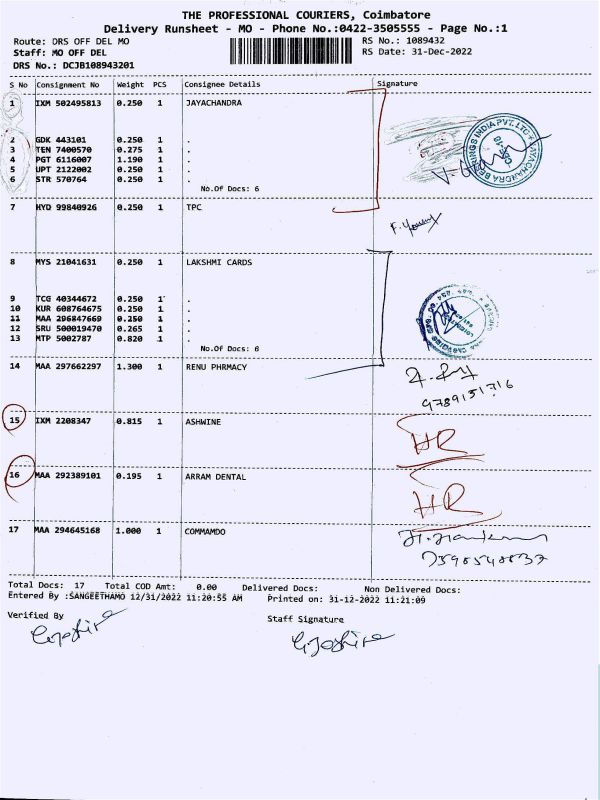 THE PROFESSIONAL COURIERS, Coimbatore
Delivery Runsheet - MO - Phone No.:0422-3505555 - Page No.:1
Route: DRS OFF DEL MO RS No.: 1089432
Staff: MO OFF DEL RS Date: 31-Dec-2022
DRS No.: DCJB108943201
S No Consignment No Weight PCS Consignee Details Signature
1 IXM 502495813 0.250 1 JAYACHANDRA
2 GDK 443101 0.250 1 .
3 TEN 7400570 0.275 1 .
4 PGT 6116007 1.190 1 .
5 UPT 2122002 0.250 1 .
6 STR 570764 0.250 1 .
No.Of Docs: 6
7 HYD 99840926 0.250 1 TPC
8 MYS 21041631 0.250 1 LAKSHMI CARDS
9 TCG 40344672 0.250 1 .
10 KUR 608764675 0.250 1 .
11 MAA 296847669 0.250 1 .
12 SRU 500019470 0.265 1 .
13 MTP 5002787 0.820 1 .
No.Of Docs: 6
14 MAA 297662297 1.300 1 RENU PHRMACY
9789151716
15 IXM 2208347 0.815 1 ASHWINE HR
16 MAA 292389101 0.195 1 ARRAM DENTAL HR
17 MAA 294645168 1.000 1 COMMAMDO
Total Docs: 17 Total COD Amt: 0.00 Delivered Docs: Non Delivered Docs:
Entered By :SANGEETHAMO 12/31/2022 11:20:55 AM Printed on: 31-12-2022 11:21:09
Verified By Staff Signature